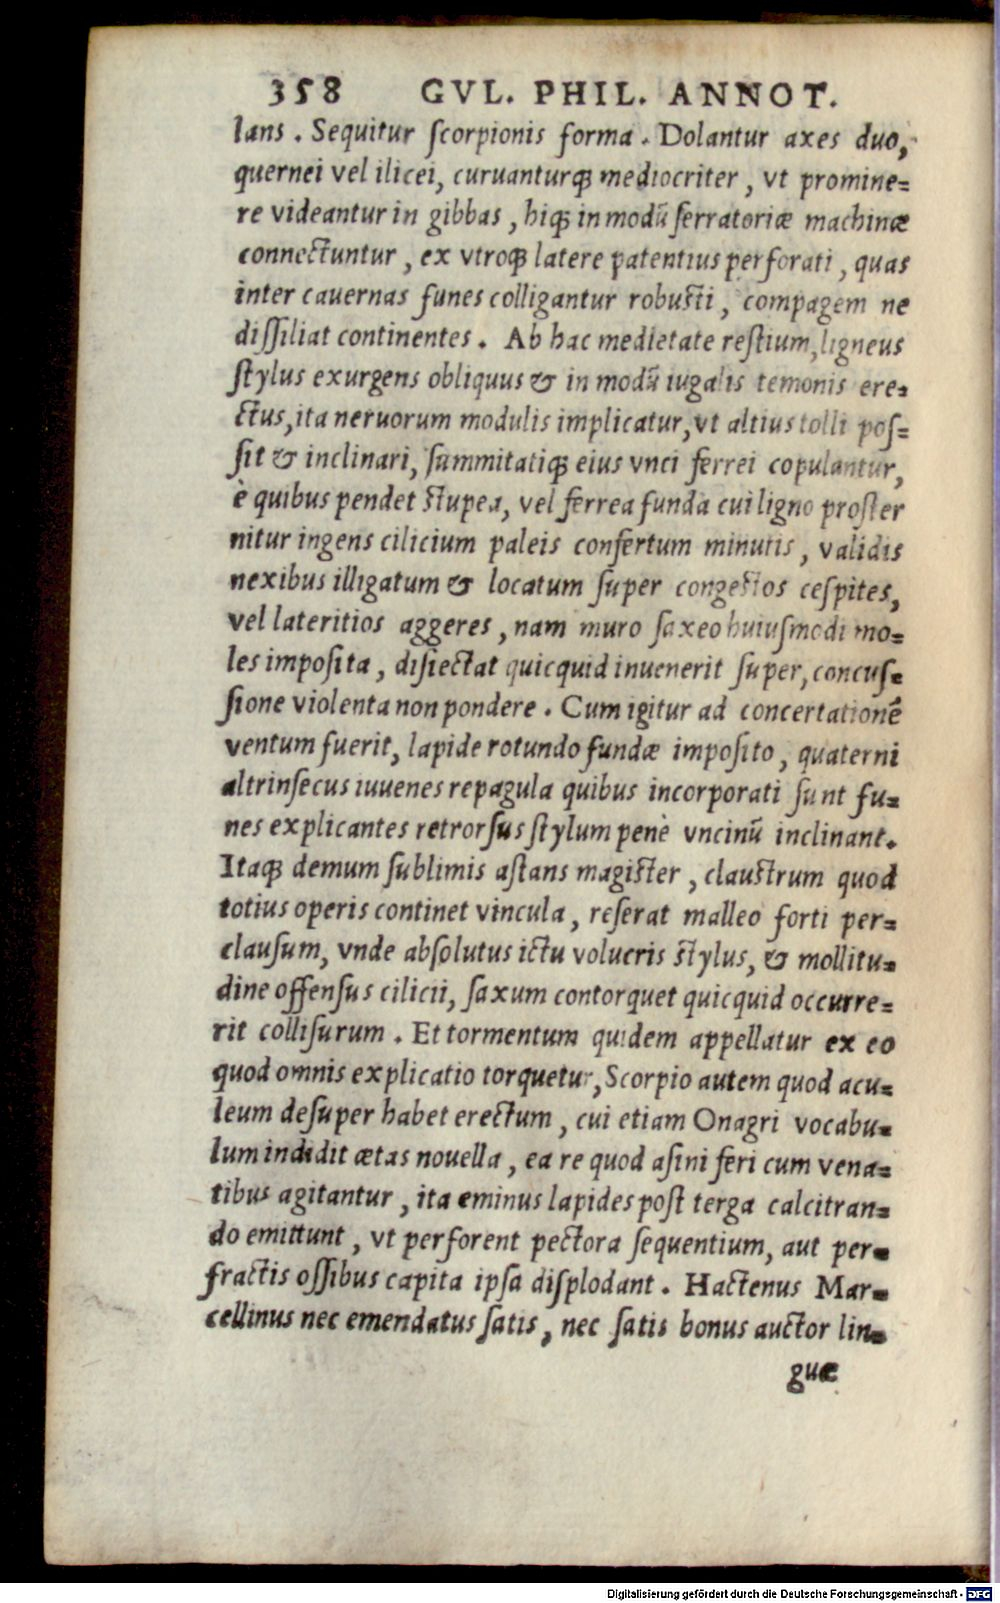 358 GVL. PHIL. ANNOT.
lans . Sequitur ſcorpionis forma . Dolantur axes duo,
quernei vel ilicei, curuanturq́ꝫ mediocriter , vt promine=
re videantur in gibbas , hiq́ꝫ in modū ſerratoriæ machinæ
connectuntur , ex vtroq́ꝫ latere patentius perforati , quas
inter cauernas funes colligantur robuſti , compagem ne
diſſiliat continentes . Ab hac medietate reſtium, ligneus
ſtylus exurgens obliquus & in modū iugalis temonis ere=
ctus, ita neruorum modulis implicatur, vt altius tolli poſ=
ſit & inclinari, ſummitatiq́ꝫ eius vnci ferrei copulantur,
è quibus pendet ſtupea, vel ferrea funda cui ligno proſter
nitur ingens cilicium paleis confertum minutis , validis
nexibus illigatum & locatum ſuper congeſtos ceſpites,
vel lateritios aggeres , nam muro ſaxeo huiuſmodi mo=
les impoſita , diſiectat quicquid inuenerit ſuper, concuſ=
ſione violenta non pondere . Cum igitur ad concertationē
ventum fuerit, lapide rotundo fundæ impoſito , quaterni
altrinſecus iuuenes repagula quibus incorporati ſunt fu=
nes explicantes retrorſus ſtylum penè vncinū inclinant.
Itaq́ꝫ demum ſublimis aſtans magiſter , clauſtrum quod
totius operis continet vincula , reſerat malleo forti per=
clauſum, vnde abſolutus ictu volucris ſtylus, & mollitu=
dine offenſus cilicii, ſaxum contorquet quicquid occurre=
rit colliſurum . Et tormentum quidem appellatur ex eo
quod omnis explicatio torquetur, Scorpio autem quod acu=
leum deſuper habet erectum , cui etiam Onagri vocabu=
lum indidit ætas nouella , ea re quod aſini feri cum vena=
tibus agitantur , ita eminus lapides poſt terga calcitran=
do emittunt , vt perforent pectora ſequentium, aut per=
fractis oſſibus capita ipſa diſplodant . Hactenus Mar=
cellinus nec emendatus ſatis , nec ſatis bonus auctor lin=
guæ
Digitalisierung gefördert durch die Deutsche Forschungsgemeinschaft - DFG